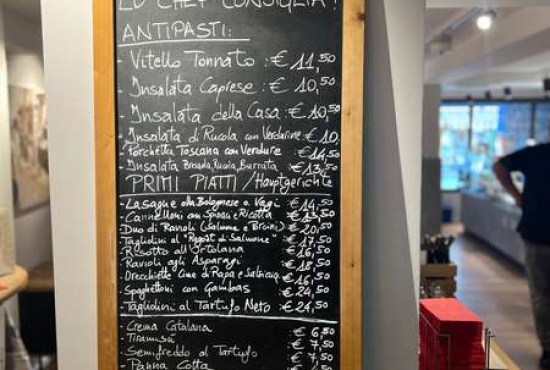 LO CHEF CONSIGLIA!
ANTIPASTI:
- Vitello Tonnato : € 11,50
- Insalata Caprese : € 10,50
- Insalata della Casa : € 10,50
- Insalata di Rucola con Verdurine € 10,
- Porchetta Toscana con Verdure € 14,50
- Insalata Bresaola, Rucola, Burrata € 13,50
PRIMI PIATTI / Hauptgerichte
- Lasagne alla Bolognese o Vegi € 14,50
- Cannelloni con Spinaci e Ricotta € 13,50
- Duo di Ravioli (Salmone e Brasini) € 20,50
- Tagliolini al "Ragout di Salmone" € 17,50
- Risotto all'Ortolana € 16,50
- Ravioli agli Asparagi € 18,50
- Orecchiette Cime di Rapa e Salsiccia € 16,50
- Spaghettoni con Gambas € 24,50
- Tagliolini al Tartufo Nero : € 24,50
- Crema Catalana € 6,50
- Tiramisù € 7,50
- Semifreddo al Tartufo € 7,50
- Panna Cotta